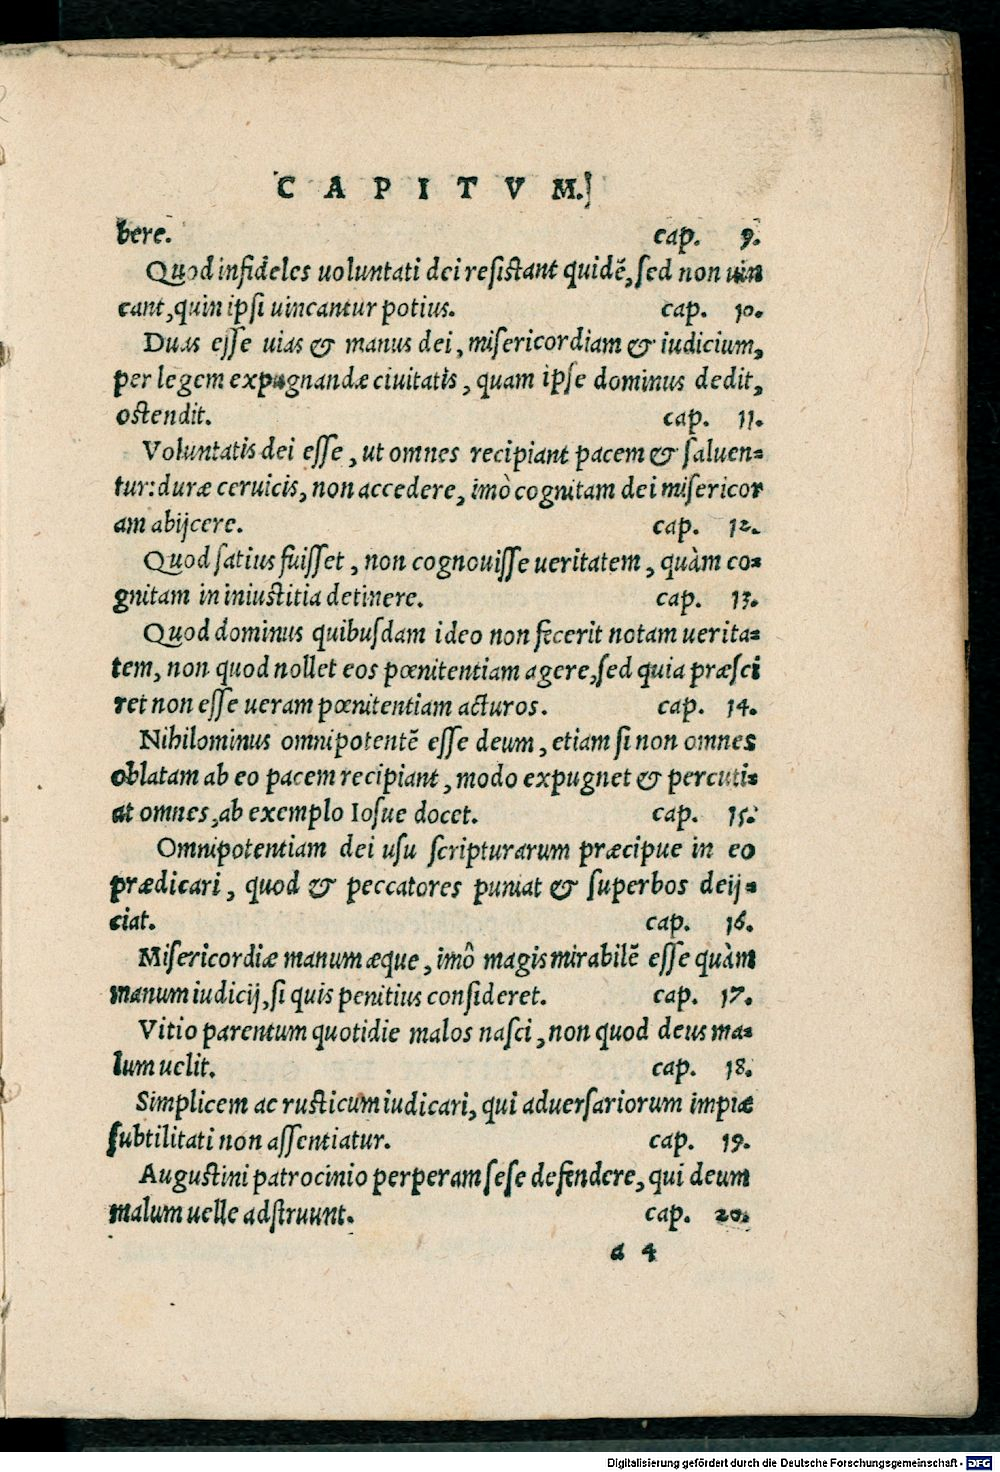 CAPITVM.
bere. cap. 9.
Quod infideles uoluntati dei resistant quidē, sed non uin
cant, quin ipsi uincantur potius. cap. 10.
Duas esse uias & manus dei, misericordiam & iudicium,
per legem expugnandæ ciuitatis, quam ipse dominus dedit,
ostendit. cap. 11.
Voluntatis dei esse, ut omnes recipiant pacem & saluen=
tur: duræ ceruicis, non accedere, imò cognitam dei misericor
am abijcere. cap. 12.
Quod satius fuisset, non cognouisse ueritatem, quàm co=
gnitam in iniustitia detinere. cap. 13.
Quod dominus quibusdam ideo non fecerit notam uerita=
tem, non quod nollet eos pœnitentiam agere, sed quia præsci
ret non esse ueram pœnitentiam acturos. cap. 14.
Nihilominus omnipotentē esse deum, etiam si non omnes
oblatam ab eo pacem recipiant, modo expugnet & percuti=
at omnes, ab exemplo Iosue docet. cap. 15.
Omnipotentiam dei usu scripturarum præcipue in eo
prædicari, quod & peccatores puniat & superbos deij=
ciat. cap. 16.
Misericordiæ manum æque, imô magis mirabilē esse quàm
manum iudicij, si quis penitius consideret. cap. 17.
Vitio parentum quotidie malos nasci, non quod deus ma=
lum uelit. cap. 18.
Simplicem ac rusticum iudicari, qui aduersariorum impiæ
subtilitati non assentiatur. cap. 19.
Augustini patrocinio perperam sese defendere, qui deum
malum uelle adstruunt. cap. 20.
a 4
Digitalisierung gefördert durch die Deutsche Forschungsgemeinschaft - DFG